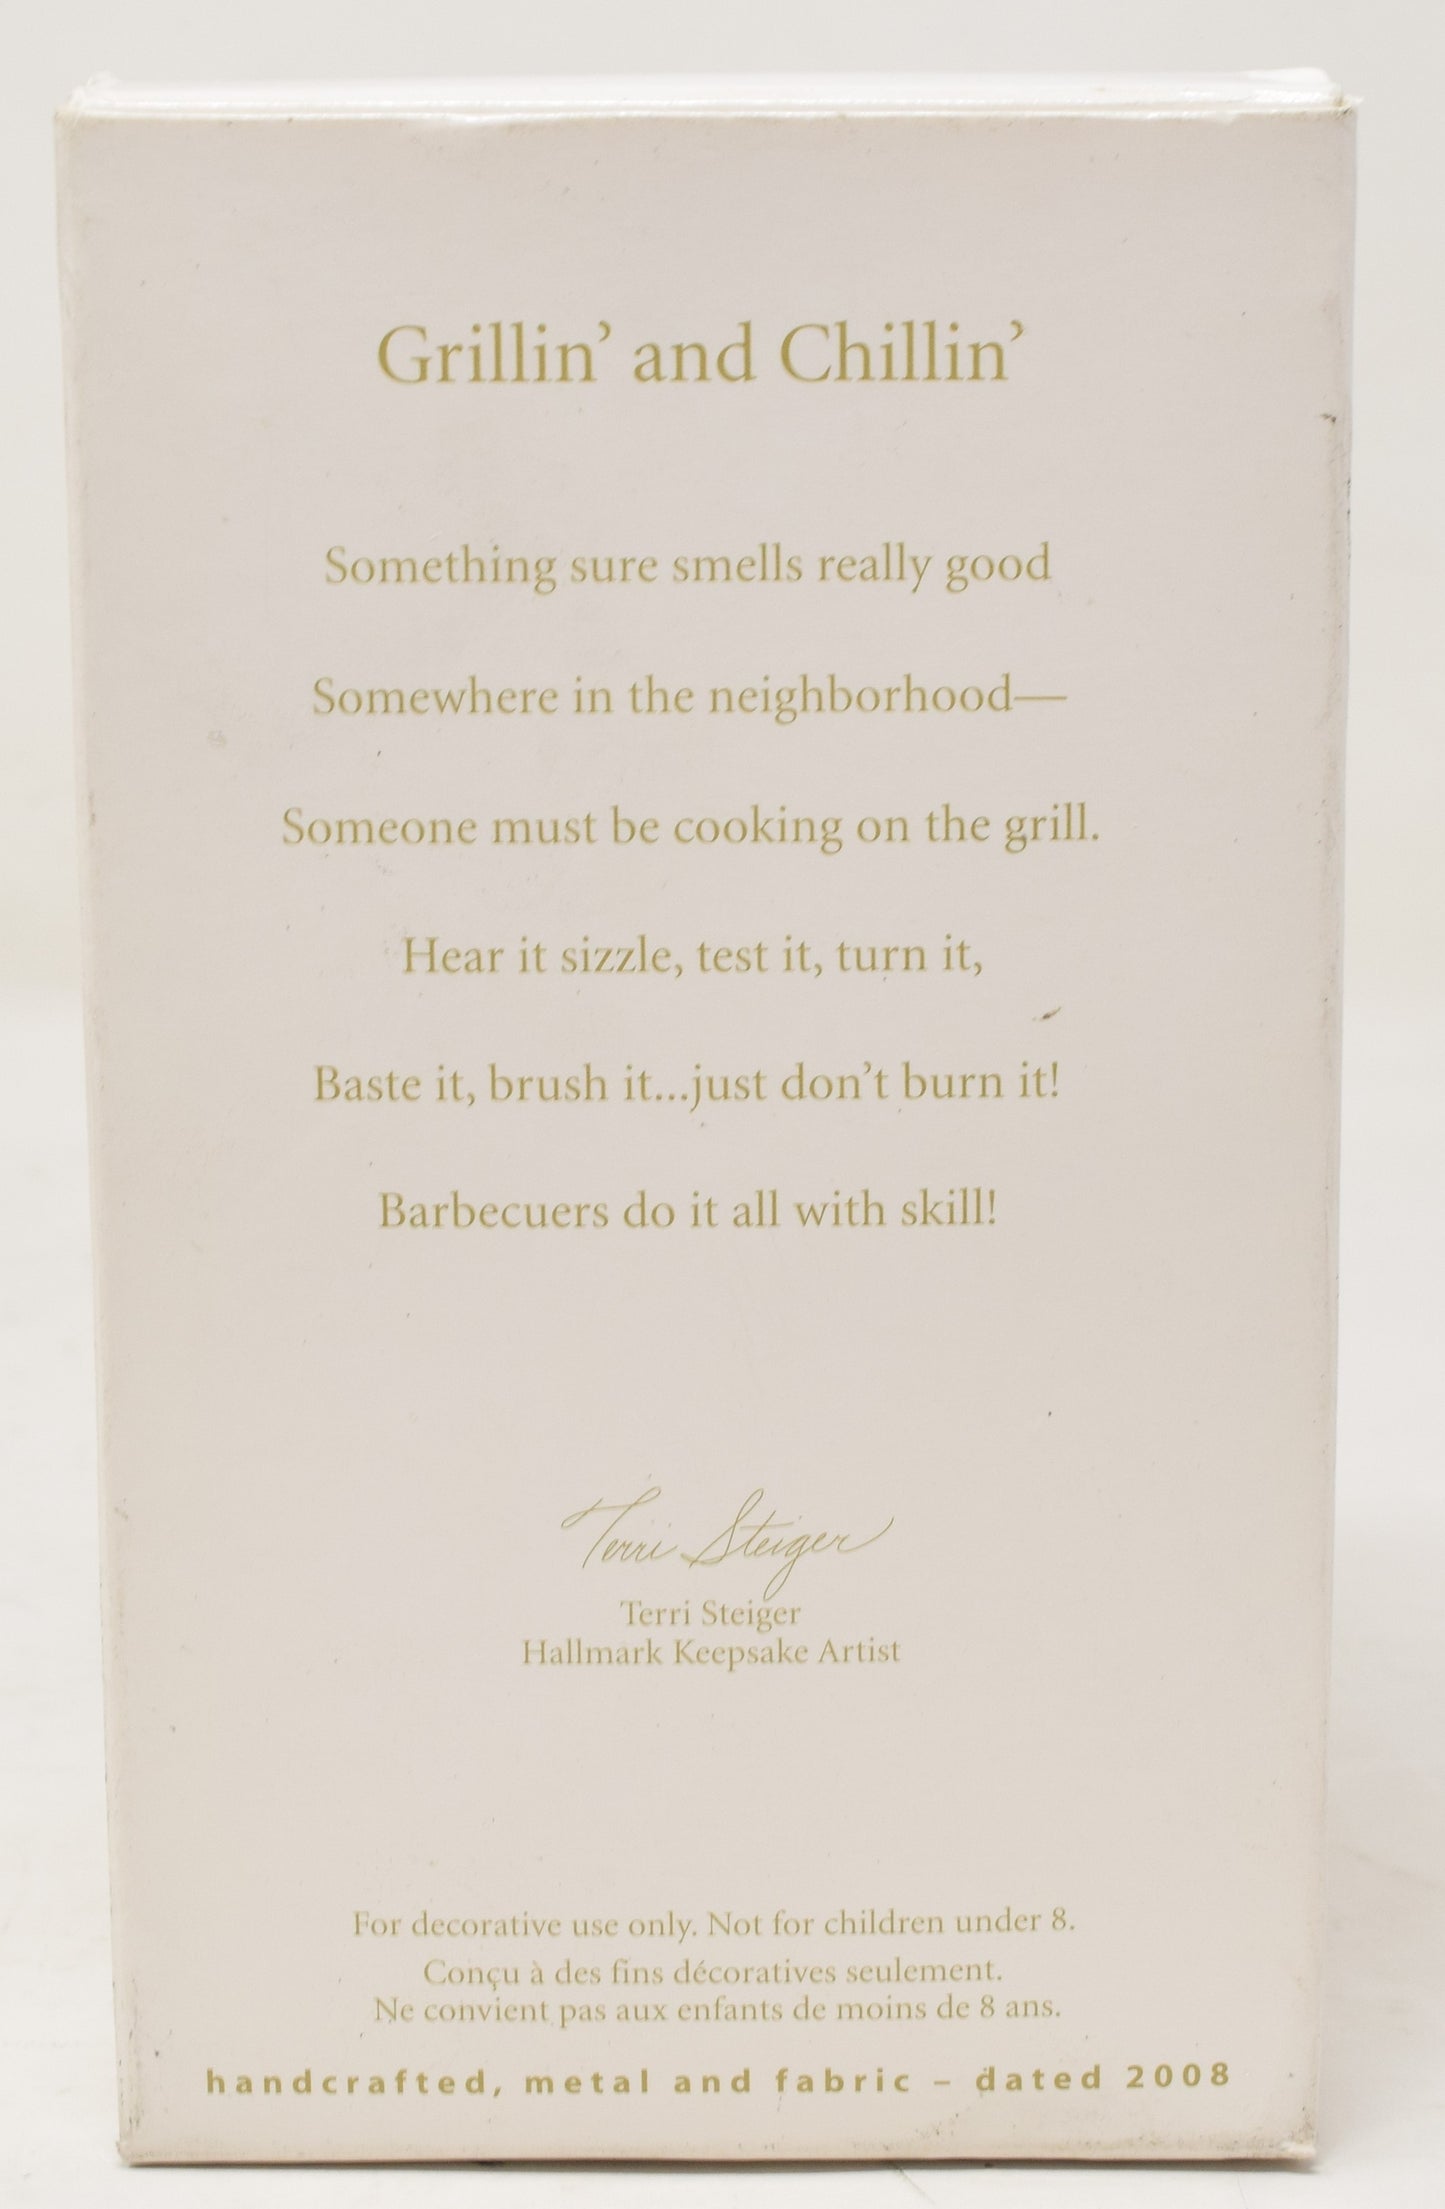 Grillin’ and Chillin’
Something sure smells really good
Somewhere in the neighborhood—
Someone must be cooking on the grill.
Hear it sizzle, test it, turn it,
Baste it, brush it...just don’t burn it!
Barbecuers do it all with skill!
Terri Steiger
Terri Steiger
Hallmark Keepsake Artist
For decorative use only. Not for children under 8.
Conçu à des fins décoratives seulement.
Ne convient pas aux enfants de moins de 8 ans.
handcrafted, metal and fabric – dated 2008